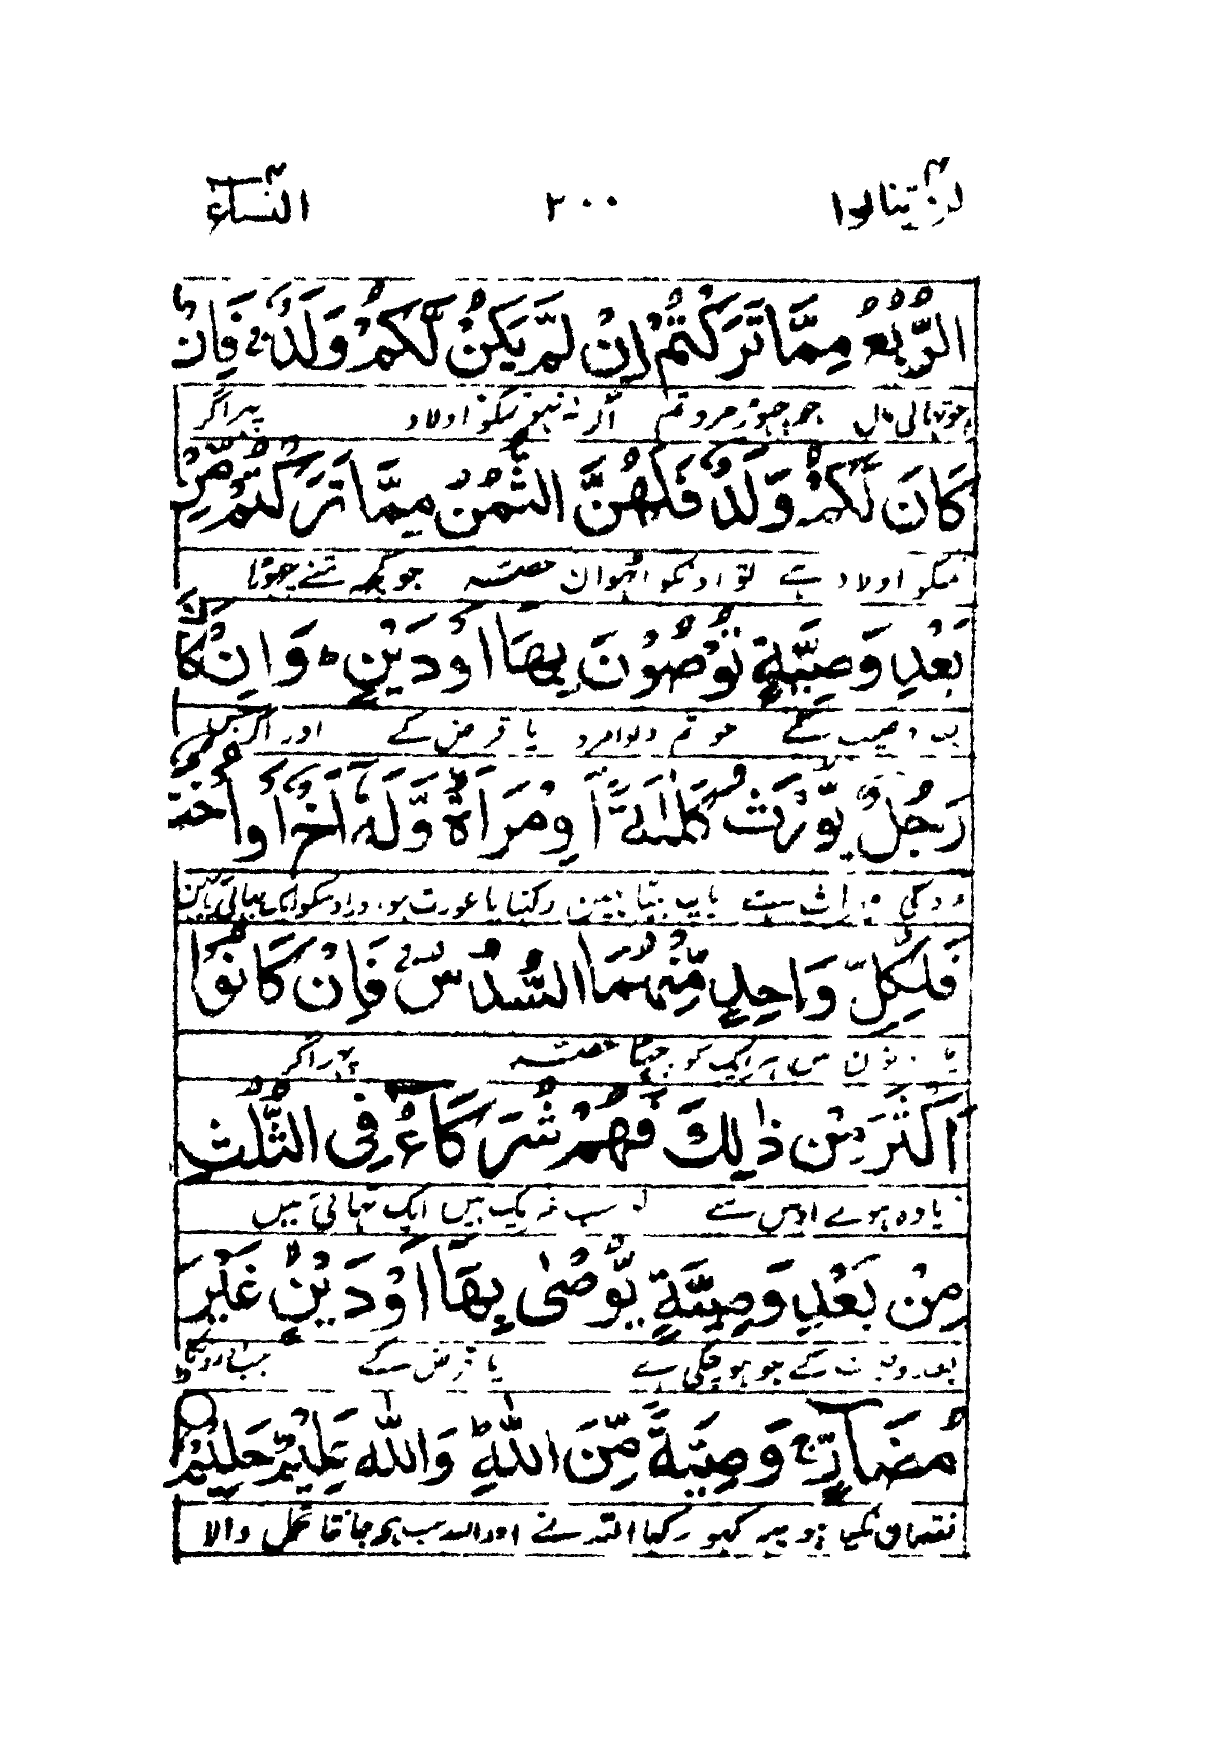 لن تنالوا ٤ ٢٠٠ النساء ٤
الرُّبُعُ مِمَّا تَرَكْتُمْ اِنْ لَّمْ يَكُنْ لَّكُمْ وَلَدٌ ۚ فَاِنْ
چوتھائی مال جو چھوڑ مرو تم اگر نہ ہو تمکو اولاد پھر اگر
كَانَ لَكُمْ وَلَدٌ فَلَهُنَّ الثُّمُنُ مِمَّا تَرَكْتُمْ مِّنْ
تمکو اولاد ہے تو اونکو اٹھوان حصہ جو کچھ تمنے چھوڑا
بَعْدِ وَصِيَّةٍ تُوْصُوْنَ بِهَآ اَوْ دَيْنٍ ؕ وَاِنْ كَانَ
بعد وصیت کے جو تم دلوا مرو یا قرض کے اور اگر جس
رَجُلٌ يُّوْرَثُ كَلٰلَةً اَوِ امْرَاَةٌ وَّلَهٗٓ اَخٌ اَوْ اُخْتٌ
مرد کی میراث ہے باپ بیٹا نہیں رکھتا یا عورت ہو اور اوسکو ایک بھائی یا بہن
فَلِكُلِّ وَاحِدٍ مِّنْهُمَا السُّدُسُ ۚ فَاِنْ كَانُوْٓا
میں ہر ایک کو چھٹا حصہ پھر اگر
اَكْثَرَ مِنْ ذٰلِكَ فَهُمْ شُرَكَآءُ فِى الثُّلُثِ
زیادہ ہوے اوس سے تو سب شریک ہیں ایک تہائی میں
مِنْ بَعْدِ وَصِيَّةٍ يُّوْصٰى بِهَآ اَوْ دَيْنٍ غَيْرَ
بعد وصیت کے جو ہو چکی ہے یا قرض کے جب
مُضَآرٍّ ۚ وَصِيَّةً مِّنَ اللّٰهِ ؕ وَاللّٰهُ عَلِيْمٌ حَلِيْمٌ
نقصان نکیا ہو یہ کہہ رکھا اللہ نے اور اللہ سب جانتا تحمل والا